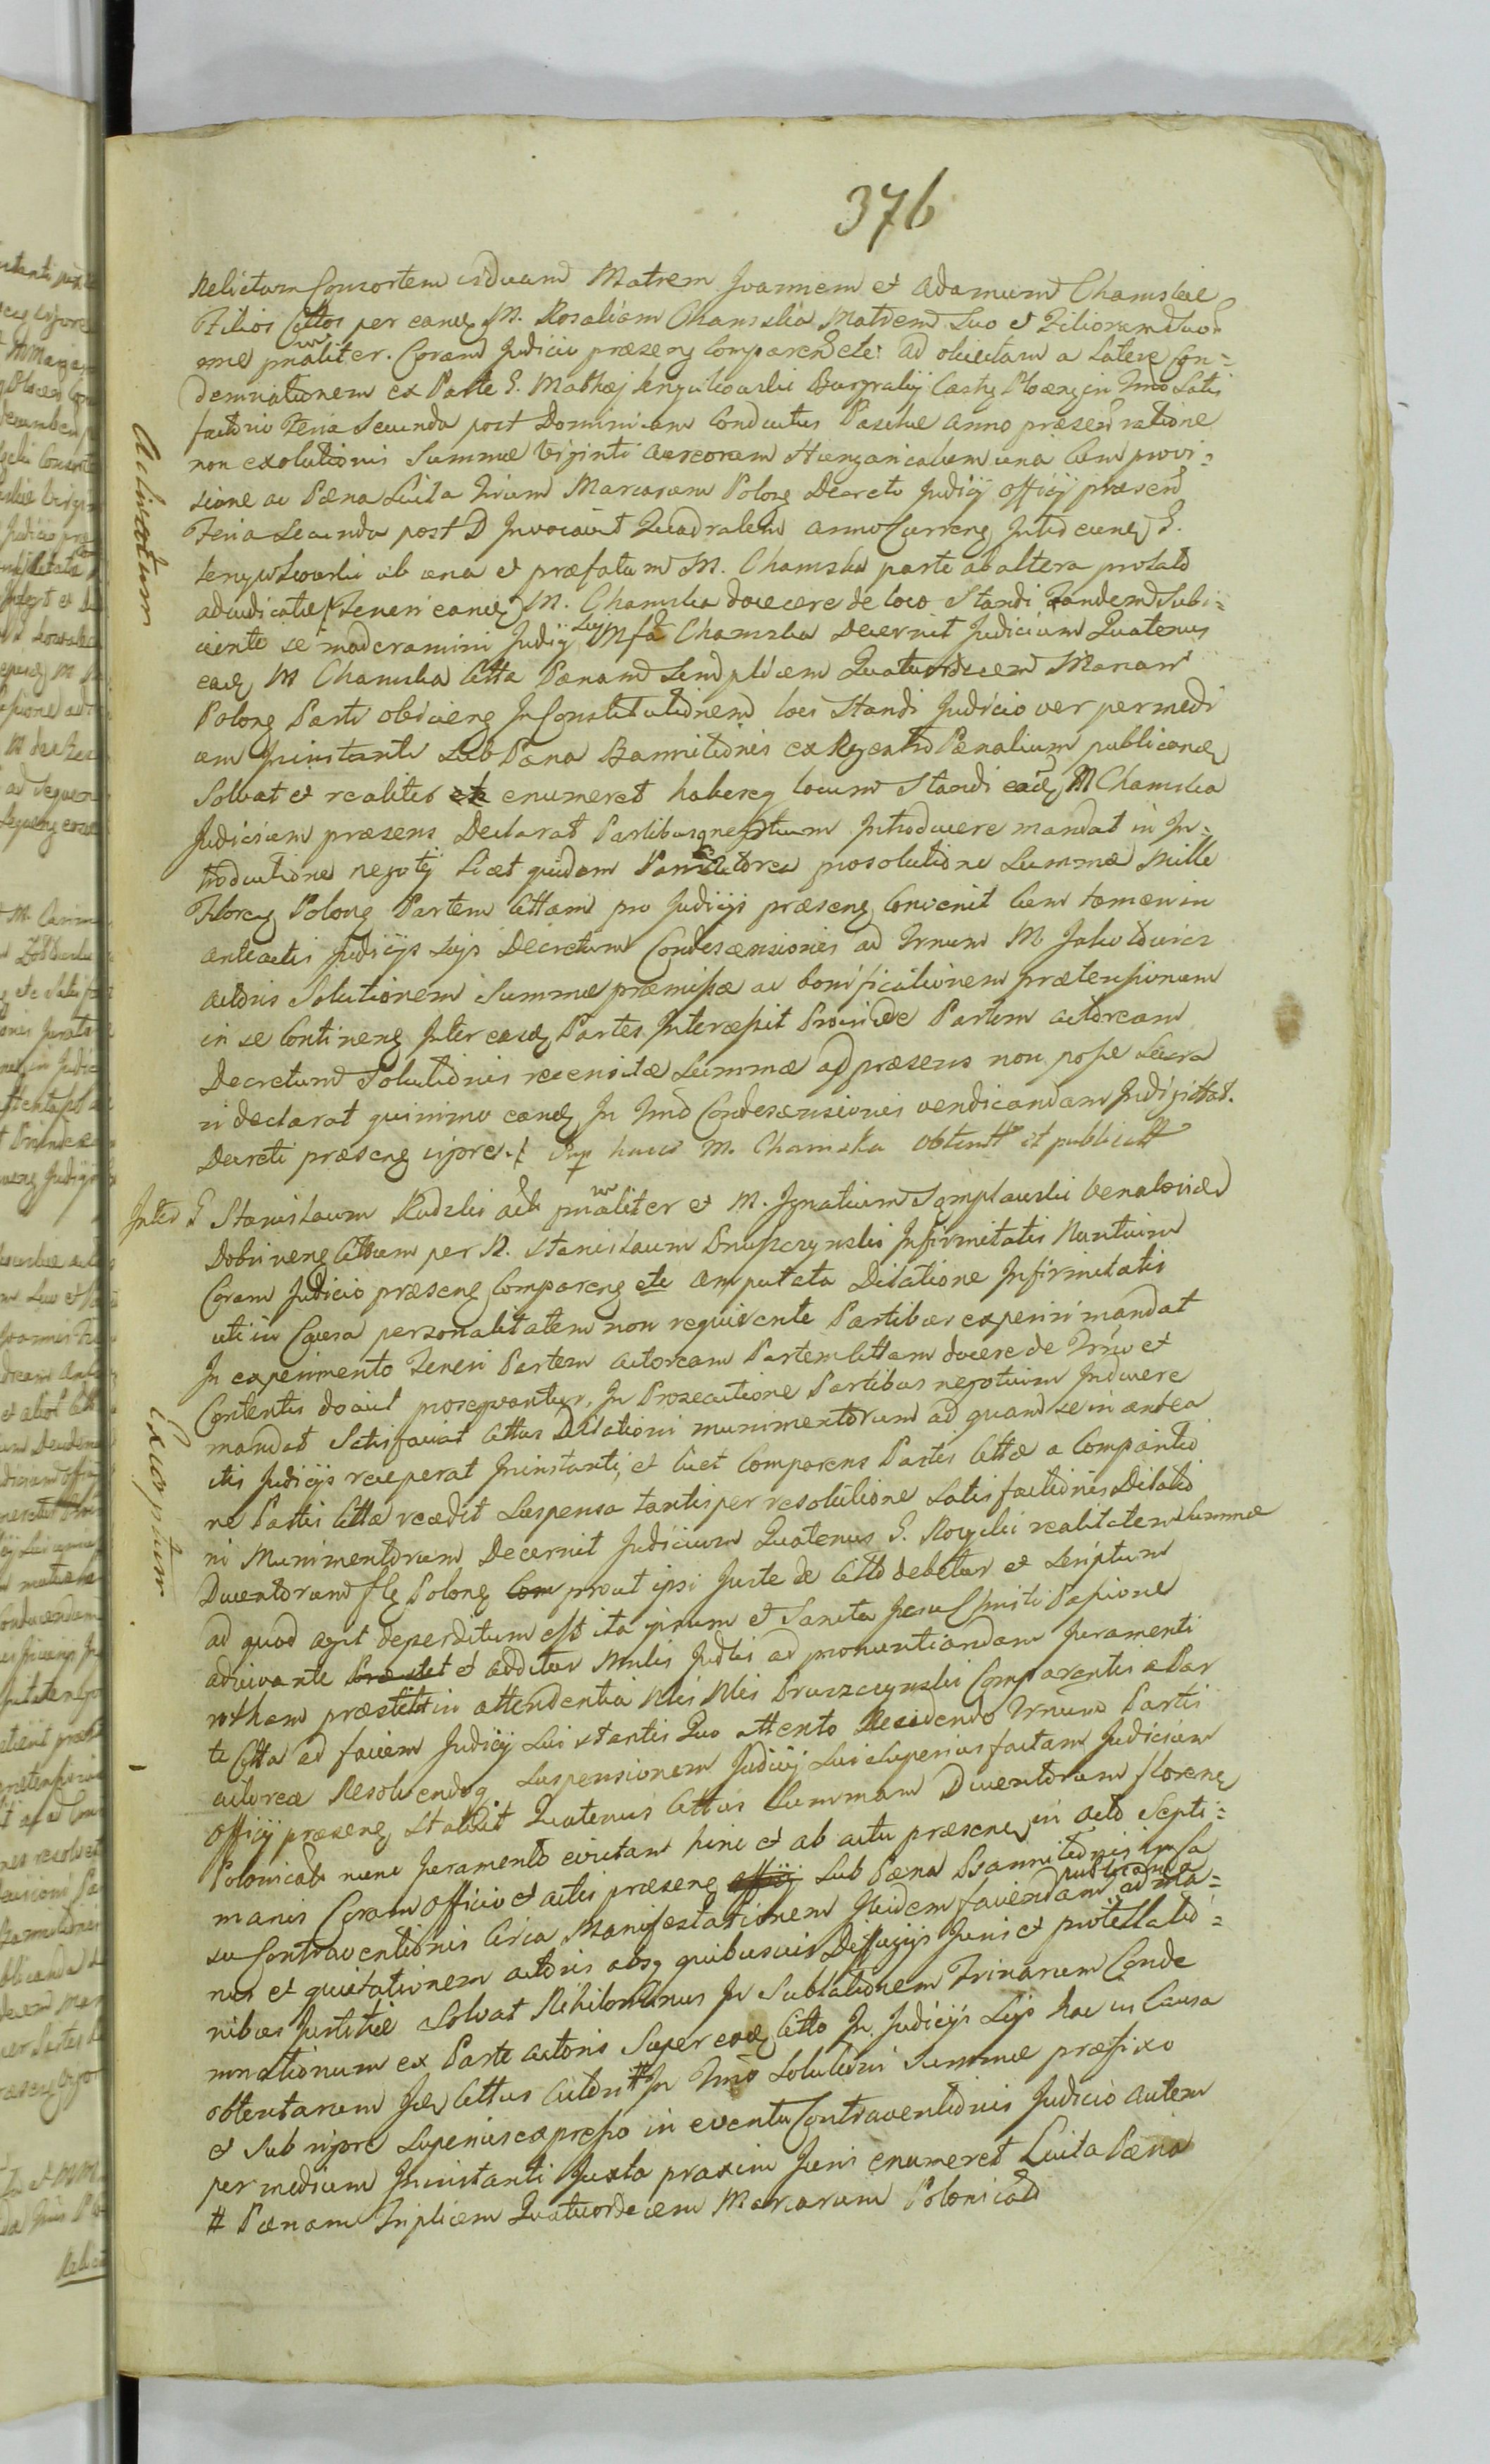 376
Relictam Consortem viduam Matrem Joannem et Adamum Chamskie
Filios Cittos per eand M. Rosaliam Chamska Matrem Suo et Filiorum Suor
me pnaliter. Coram Judicio præsens Comparend etc: ad obiectam a Latere Con=
demnationem ex Parte G. Mathæj Burgrabij Castr in Tmo Satis
factorio Feria Secunda post Dominicam Conductus Paschæ Anno præsen ratione
non exolutionis Summæ Viginti Aureorum Hungaricalium una cum provi=
sione ac Pæna Luita Trium Marcarum Polong Decreto Judicij Officij præsen
Feria Secunda post D Invocavit Quadralem anno Curreng Inter eund G.
ab una et præfatam M. Chamska parte ab altera prolato
adiudicatæ Teneri eand M. Chamska docere de loco Standi Tandem Subi=
ciente se moderamini Judicij Sui Mfa Chamska Decernit Judicium Quatenus
ead M Chamska Citta Pænam Simplicem Quatuordecem Marcar
Polong Parti obicieng In Constitutionem loci Standi Judicio ver per medi
am Ininstanti Sub Pæna Bannitionis ex Regestro Pænalium publicand
Solvat et realiter enumeret habereq locum Standi eand M Chamska
Judicium præsens Declarat Partibusq negotium Introducere mandat in In=
troductione negotij Licet quidem Pars Actorea pro solutione Summæ Mille
Floreng Polong Partem Cittam pro Judicijs præseng Convenit Cum tamen in
anteactis Judicijs Sujs Decretum Condescensionis ad Trnum M
actoris Solutionem Summæ præmissæ ac bonificationem prætensionum
in se Contineng Inter easd Partes Intercessit Proinde Partem actoream
Decretum Solutionis recensitæ Summæ ad præsens non posse Lucra
ri declarat quinimo eand In Tmo Condescensionis vendicandam Judi
Decreti præseng vigore. Sup huius M. Chamska obtentt et publicatt
Actoratum
Inter G Stanislaum Rudzki act pnaliter et M. Ignatium Venatorid
Dobrineng Cittum per N. Stanislaum Pruszczynski Infirmitatis Nuntium
Coram Judicio præseng Compareng etc amputata Dilatione Infirmitatis
uti in Causa personalitatem non requirente Partibus experiri mandat
In experimento Teneri Partem actoream Partem Cittam docere de Trno et
Contentis docuit prosequantur, In Prosecutione Partibus negotium Inducere
mandat Satisfaciat Cittus Dilationi munimentorum ad quam se in antea
ctis Judicijs receperat Ininstanti, et Licet Comparens Partis Cittæ a Comparitio
ne Partis Cittæ recedit Suspensa tantisper resolutione Satisfactionis Dilatio
ni Munimentorum Decernit Judicium Quatenus G. realitatem Summæ
Ducentorum flg Polong Com prout ipsi Juste de Citto debetur et Scriptum
ad quod agit deperditum est ita et Sancta Jesu Christi Passione
adiuvante Præstet et additur Mnlis Judlis ad pronuntiandam Juramenti
rotham præstitit in attendentia Nlis Nlis Pruszczynski Comparentis a Par
te Citta ad faciem Judicij Sui stantis Quo attento Recedendo Trnum Parti
actoreæ Resolvendoq Suspensionem Judicij Sui Superius factam Judicium
Officij præseng Statuit Quatenus Cittus Summam Ducentorum floreng
Polonicali nunc Juramento evictam hinc et ab actu præseng in acto Septi=
manis Coram Officio et actis præseng officij Sub Pæna Bannitionis in Ca
su Contraventionis publicanda Circa Manifestationem Ibidem faciendam ad ma=
nus et quietationem actoris absq quibusvis Diffugijs Juris et protellatio=
nibus Justitiæ Solvat Nihilominus In Sublationem Trinarum Conde
mnationum ex Parte actoris Super eod Citto In Judicijs Sujs hac in Causa
obtentarum Id Cittus actori # In Tmo Solutioni Summæ præfixo
et Sub rigore Superius expresso in eventu Contraventionis Judicio autem
per medium Ininstanti Juxta praxim Juris enumeret Luita Pæna
# Pænam Triplicem Quatuordecem Marcarum Polonicali
Exceptum